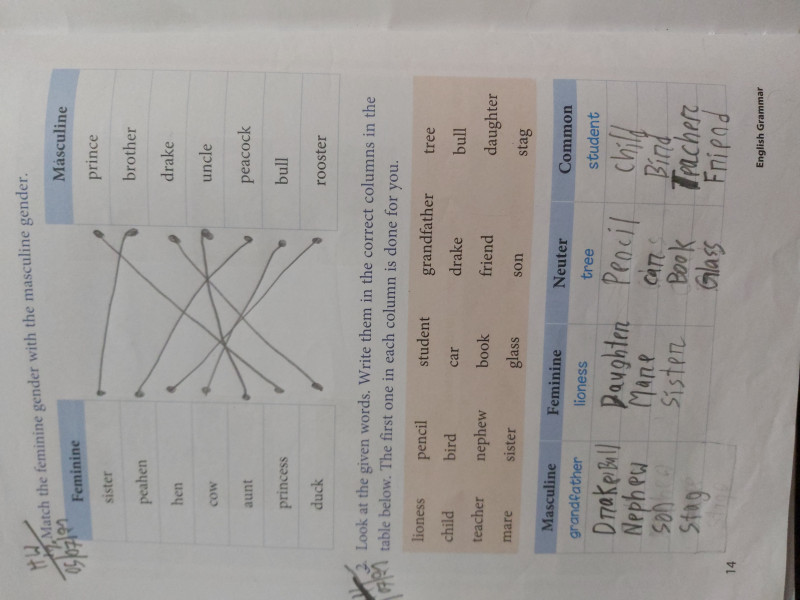 HW
1. Match the feminine gender with the masculine gender.
Feminine Masculine
sister prince
peahen brother
hen drake
cow uncle
aunt peacock
princess bull
duck rooster
2. Look at the given words. Write them in the correct columns in the
table below. The first one in each column is done for you.
lioness pencil student grandfather tree
child bird car drake bull
teacher nephew book friend daughter
mare sister glass son stag
Masculine Feminine Neuter Common
grandfather lioness tree student
Drake Bull Daughter Pencil Child
Nephew Mare car Bird
Son Sister Book Teacher
Stag Glass Friend
14 English Grammar